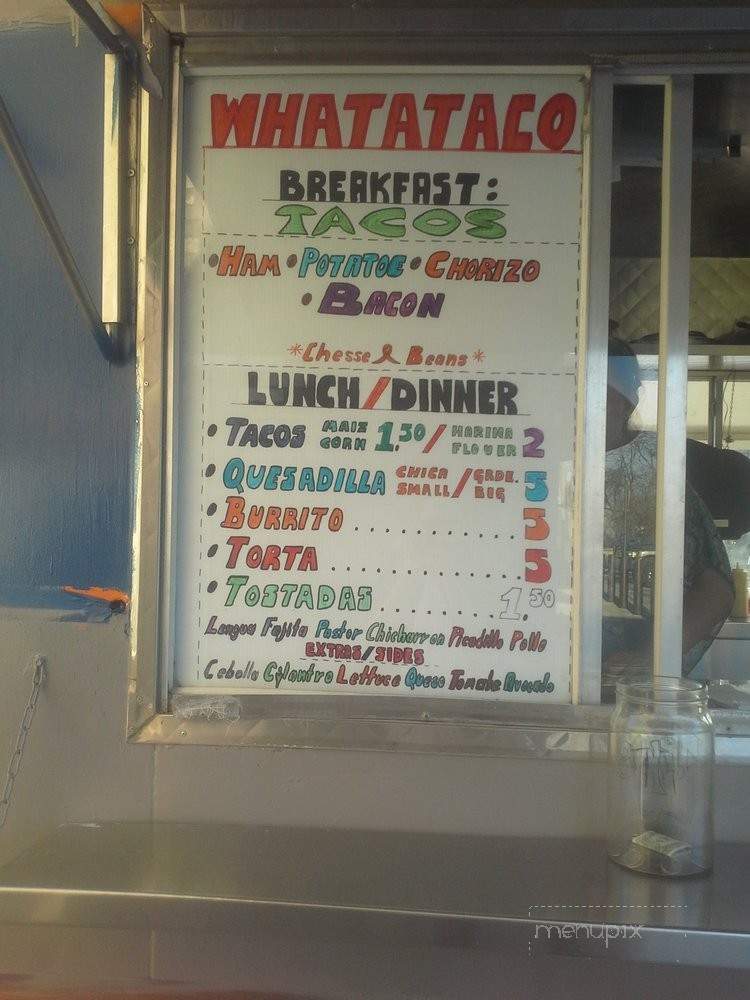 WHATATACO
BREAKFAST:
TACOS
• HAM • POTATOE • CHORIZO
• BACON
*Chesse & Beans*
LUNCH/DINNER
• TACOS MAIZ CORN 1.50 / HARINA FLOUER 2
• QUESADILLA CHICA SMALL / GRDE. BIG 5
• BURRITO ............ 5
• TORTA ............... 5
• TOSTADAS ........... 1.50
Lengua Fajita Pastor Chicharron Picadillo Pollo
EXTRAS/SIDES
Cebolla Cylantro Lettuce Queso Tomate Avocado
menupix